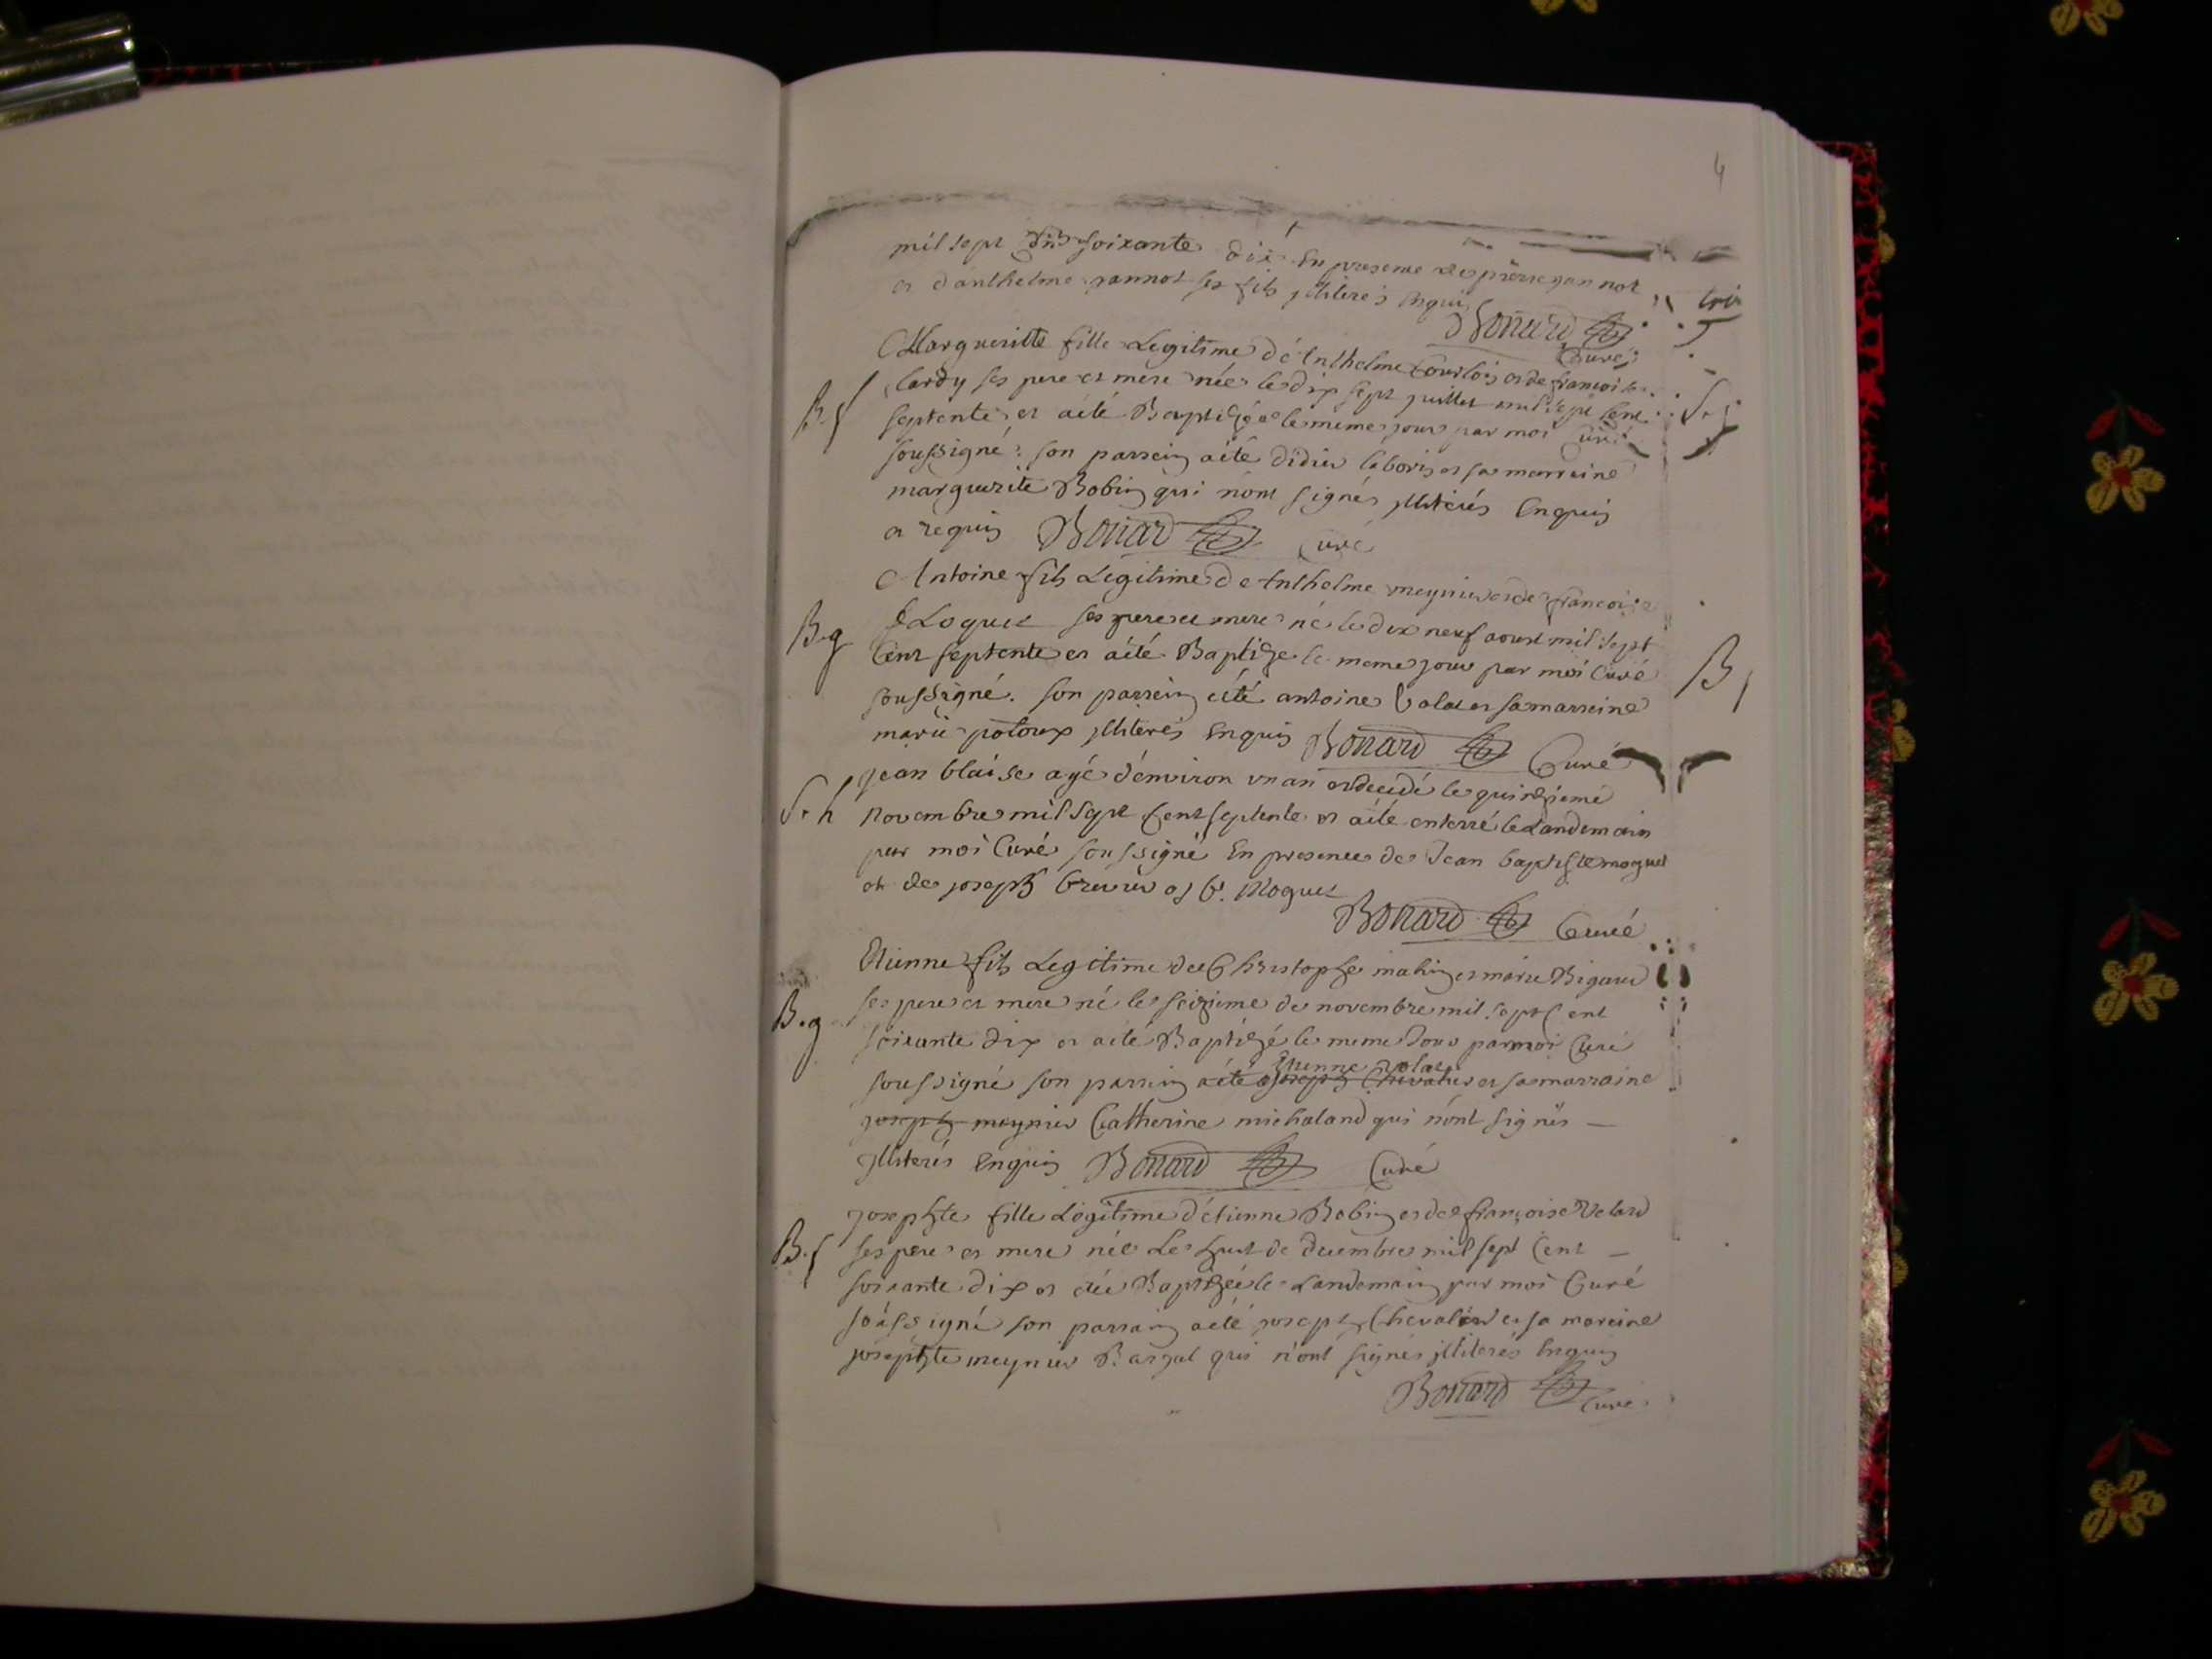 4
mil sept cent soixante dix En presence de pierre jannot
et d'anthelme jannot ses fils jlliterés Enquis
Bonard Curé
Margueritte fille Legitime d'Anthelme Courtois et de francoise
lardy ses pere et mere née le dix sept juillet mil sept Cent
B. f
septente et aété Baptizée le meme jour par moi Curé
soussigné. son parrein aété didier et sa marreine
marguerite Bobin qui n'ont signés jlliterés Enquis
et requis Bonard Curé
Antoine fils Legitime de Anthelme meynier et de francoise
B. g
Loquet ses pere et mere né le dix neuf aoust mil sept
Cent septente et aété Baptize le meme jour par moi Curé
B
soussigné. son parrein aété antoine Volat et sa marreine
marie potoux jlliterés Enquis Bonard Curé
jean blaise agé d'environ un an est decedé le quinzieme
S. h
novembre mil sept Cent septente et aété enterré le Landemain
par moi Curé soussigné En presence de Jean baptiste moquet
et de joseph b. Moquet
Bonard Curé
Etienne fils Legitime de Christophe mahin et marie Bigaud
B. g
ses pere et mere né le seizieme de novembre mil sept Cent
soixante dix et aété Baptizé le meme Jour par moi Curé
Etienne volat
soussigné son parrein aété joseph Chevalier et sa marraine
joseph meynier Catherine michaland qui n'ont signés —
jlliterés Enquis Bonard Curé
josephte fille Legitime d'étienne Bobin et de françoise Velard
B. f
ses pere et mere née Le huit de decembre mil sept Cent —
soixante dix et été Baptizée le Landemain par moi Curé
soussigné son parrain aété joseph Chevalier et sa mareine
josephte meynier qui n'ont signés jlliterés Enquis
Bonard Curé